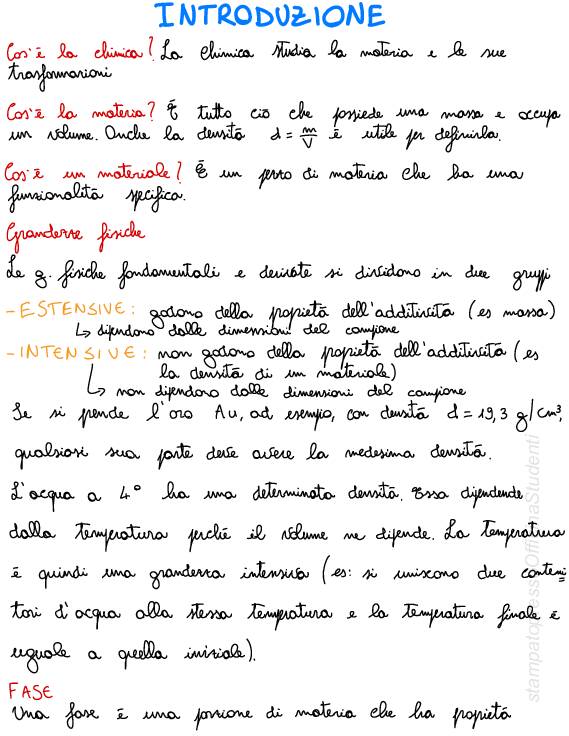 INTRODUZIONE
Cos'è la chimica? La chimica studia la materia e le sue
trasformazioni
Cos'è la materia? È tutto ciò che possiede una massa e occupa
un volume. Anche la densità d = m/V è utile per definirla.
Cos'è un materiale? È un pezzo di materia che ha una
funzionalità specifica.
Grandezze fisiche
Le g. fisiche fondamentali e derivate si dividono in due gruppi
- ESTENSIVE: godono della propietà dell'additività (es massa)
↳ dipendono dalle dimensioni del campione
- INTENSIVE: non godono della propietà dell'additività (es
la densità di un materiale)
↳ non dipendono dalle dimensioni del campione
Se si prende l'oro Au, ad esempio, con densità d = 19,3 g/cm³,
qualsiasi sua parte deve avere la medesima densità.
L'acqua a 4° ha una determinata densità. Essa dipendende
dalla temperatura perché il volume ne dipende. La temperatura
è quindi una grandezza intensiva (es: si uniscono due conteni
tori d'acqua alla stessa temperatura e la temperatura finale è
uguale a quella iniziale).
FASE
Una fase è una porzione di materia che ha propietà
stampatopressoOfficinaStudenti